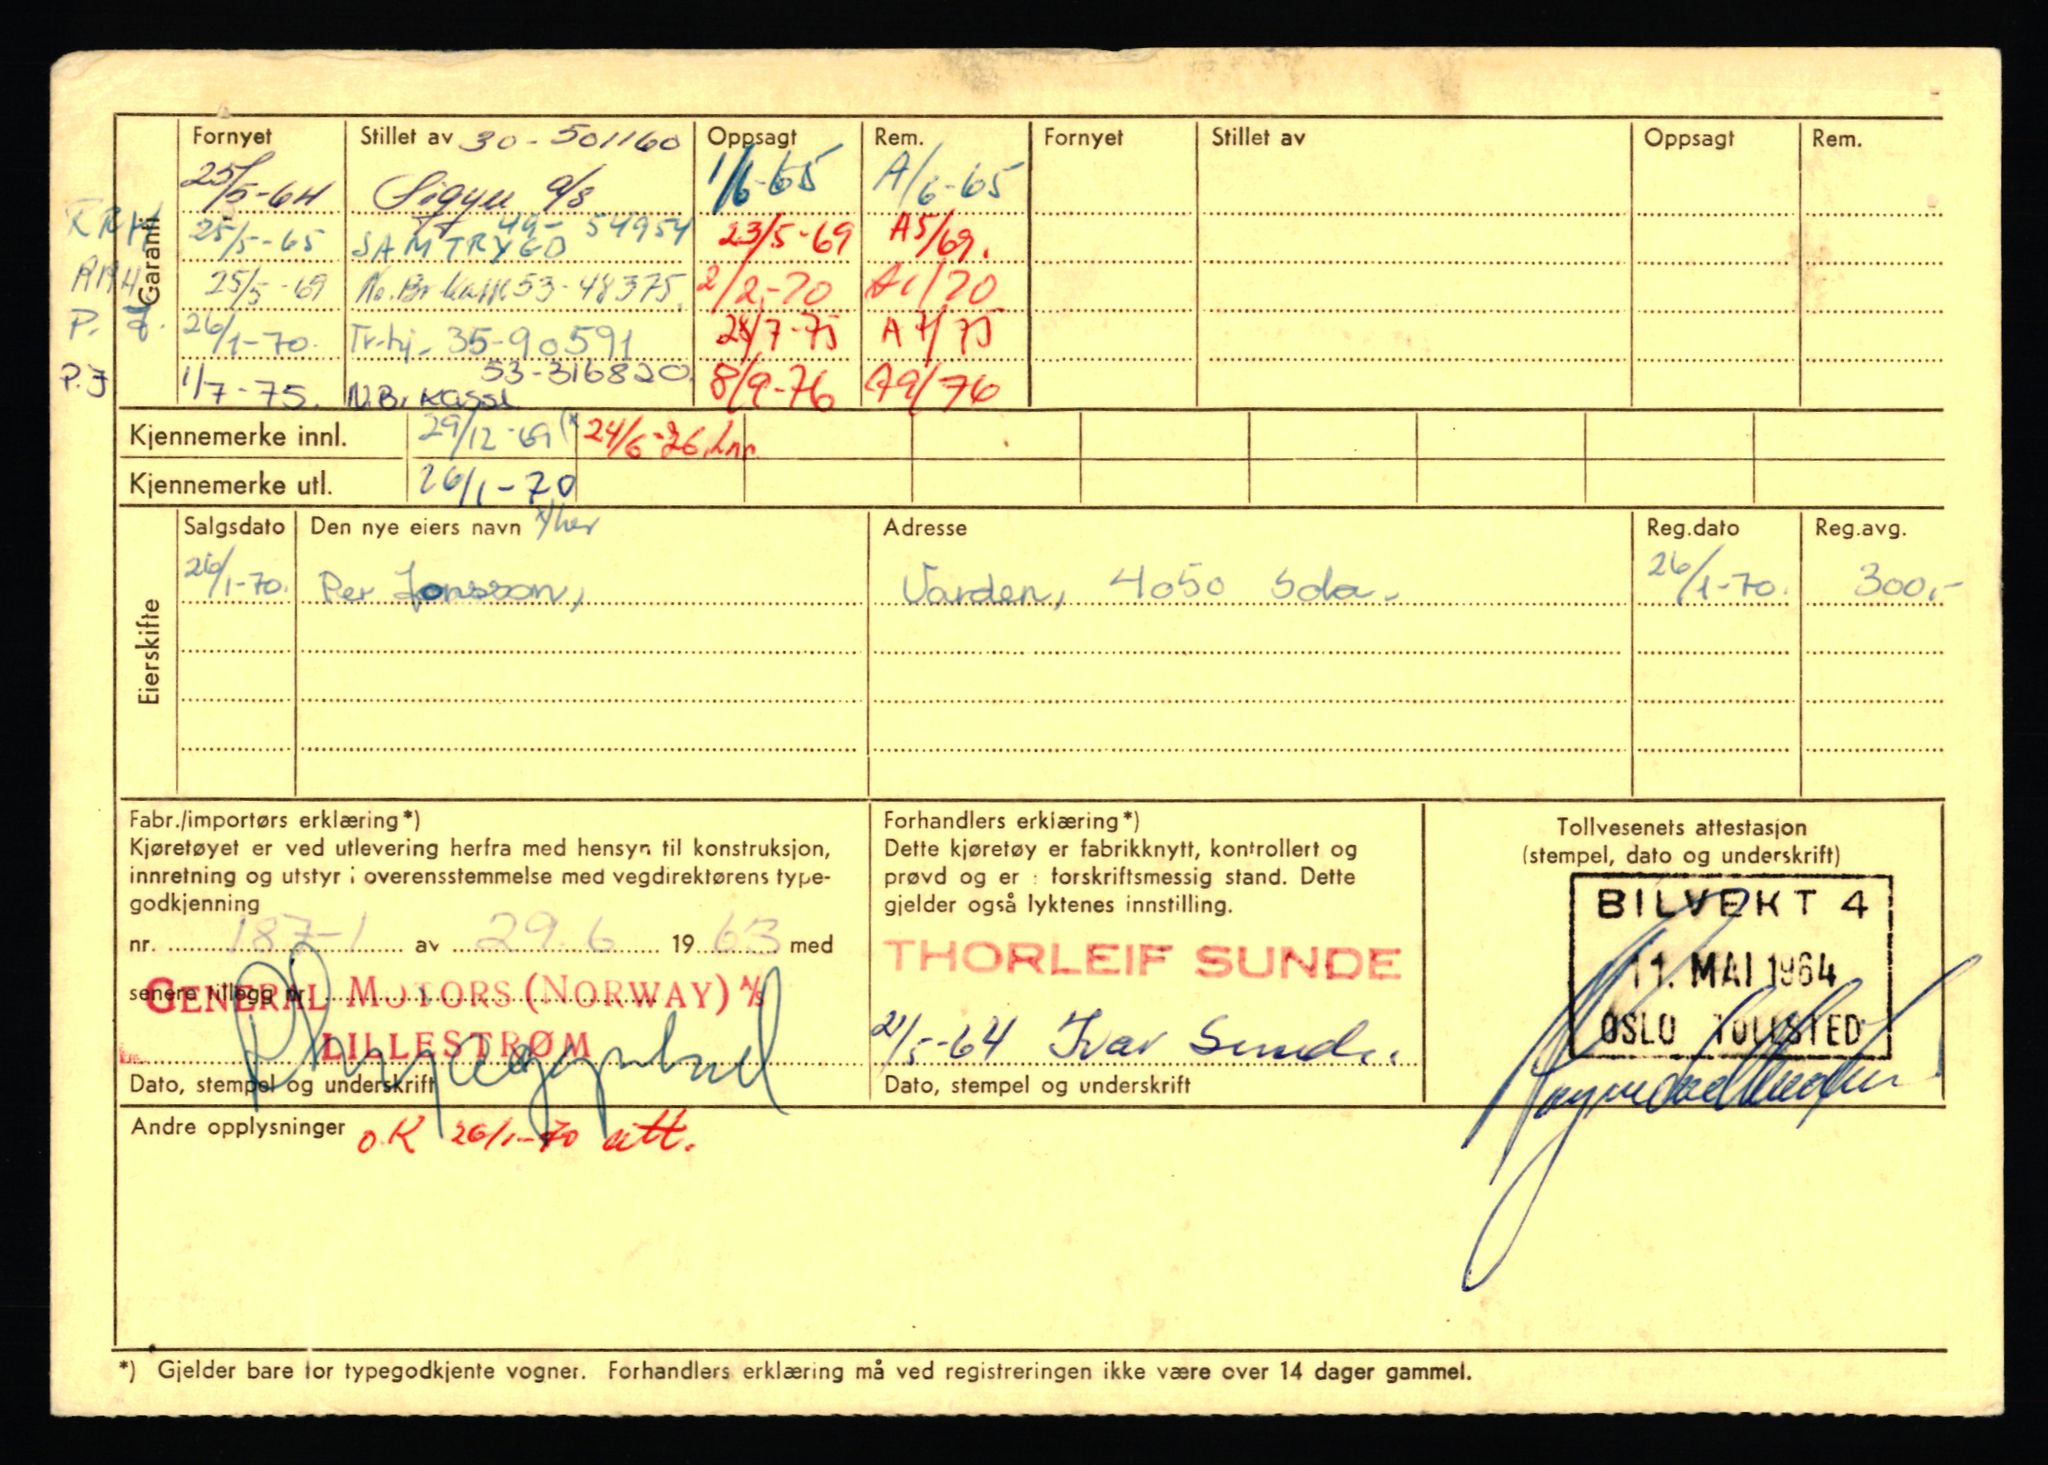 Fornyet Stillet av 30-501160 Oppsagt Rem. Fornyet Stillet av Oppsagt Rem.
Garanti
25/5-64 Sigyn a/s 1/6-65 A/6-65
KRH 25/5-65 SAMTRYGD 49-54954 23/5-69 A5/69.
AMH 25/5-69 No.Br.kasse 53-48375. 2/2-70 A1/70
26/1-70. Tr.hj. 35-90591 7-75 A7/75
P.J 1/7-75. N.Br.kasse 53-316820. 8/9-76 A9/76
Kjennemerke innl. 29/12-69 (* 24/6-76.
Kjennemerke utl. 26/1-70
Eierskifte
Salgsdato Den nye eiers navn Adresse Reg.dato Reg.avg.
26/1-70. Per Jonsson, Varden, 4050 Sola. 26/1-70. 300,-
Fabr./importørs erklæring*)
Kjøretøyet er ved utlevering herfra med hensyn til konstruksjon,
innretning og utstyr i overensstemmelse med vegdirektørens type-
godkjenning
nr. 187-1 av 29.6 1963 med
senere tillegg nr.
GENERAL MOTORS (NORWAY) A/S
LILLESTRØM
Dato, stempel og underskrift
Forhandlers erklæring*)
Dette kjøretøy er fabrikknytt, kontrollert og
prøvd og er i forskriftsmessig stand. Dette
gjelder også lyktenes innstilling.
THORLEIF SUNDE
21/5-64 Ivar Sunde.
Dato, stempel og underskrift
Tollvesenets attestasjon
(stempel, dato og underskrift)
BILVEKT 4
11. MAI 1964
OSLO TOLLSTED
Andre opplysninger O.K 26/1-70
*) Gjelder bare for typegodkjente vogner. Forhandlers erklæring må ved registreringen ikke være over 14 dager gammel.